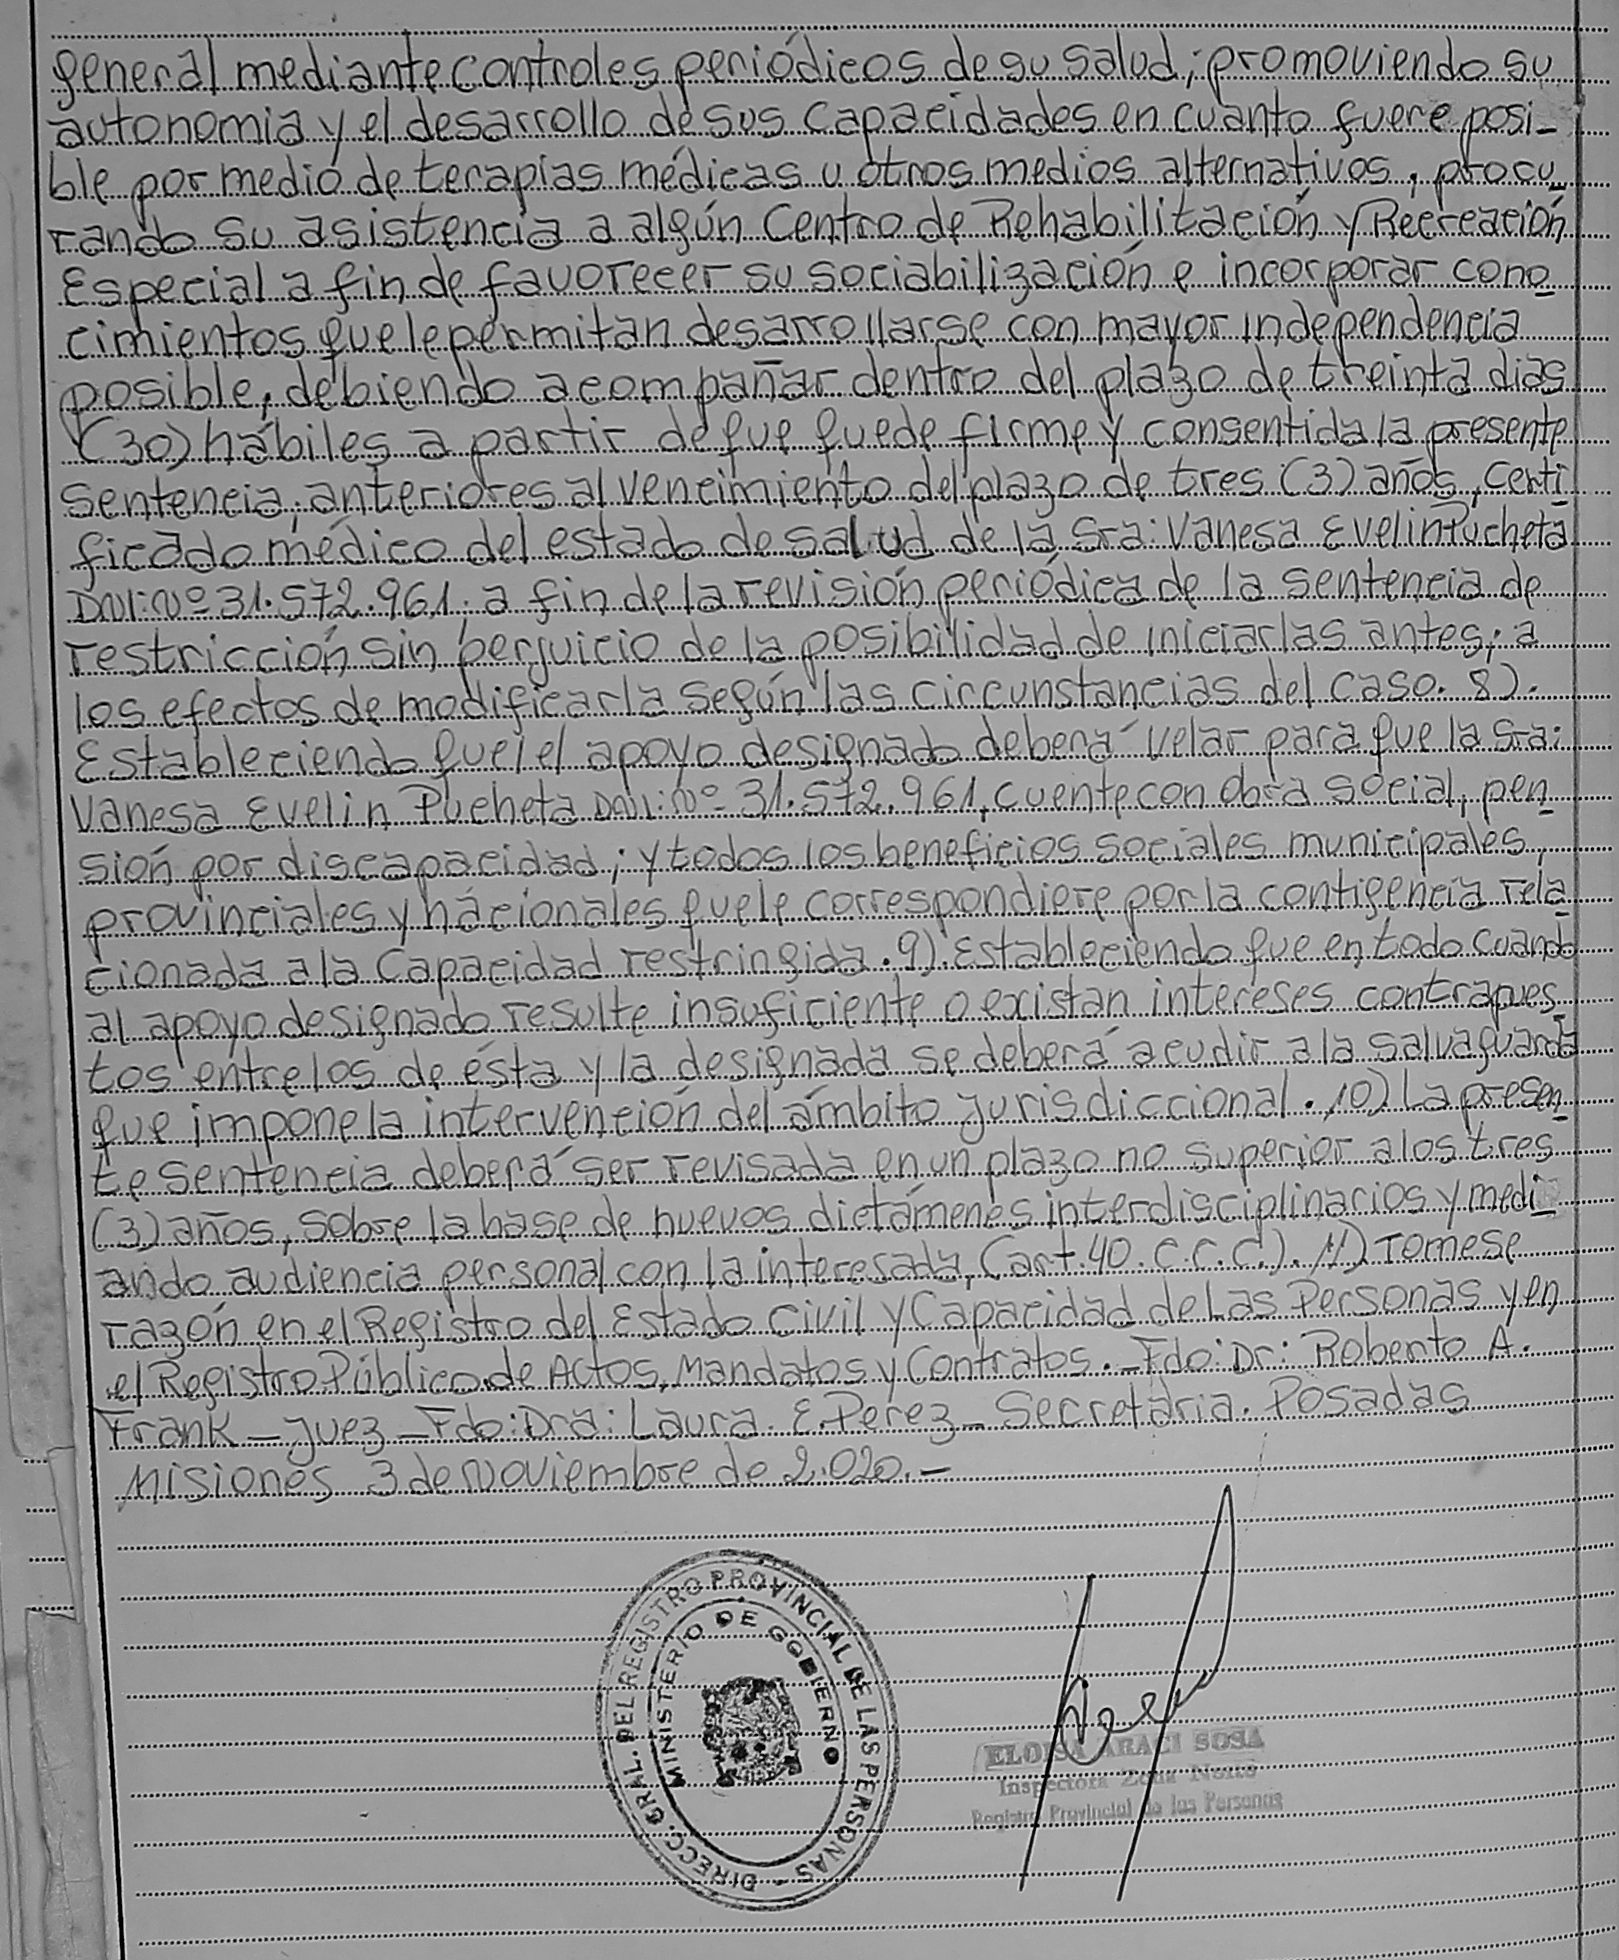 general mediante controles periódicos de su salud; promoviendo su
autonomia y el desarrollo de sus capacidades en cuanto fuere posi-
ble por medio de terapias médicas u otros medios alternativos, procu
rando su asistencia a algún Centro de Rehabilitación y Recreación
Especial a fin de favorecer su sociabilización e incorporar cono
cimientos que le permitan desarrollarse con mayor independencia
posible, debiendo acompañar dentro del plazo de treinta dias
(30) hábiles a partir de que quede firme y consentida la presente
sentencia; anteriores al vencimiento del plazo de tres (3) años, certi
ficado médico del estado de salud de la Sra: Vanesa Evelin Pucheta
DNI: Nº 31.572.961; a fin de la revisión periódica de la sentencia de
restricción sin perjuicio de la posibilidad de iniciarlas antes; a
los efectos de modificarla según las circunstancias del caso. 8).
Estableciendo que el apoyo designado deberá velar para que la Sra:
Vanesa Evelin Pucheta DNI: Nº 31.572.961, cuente con obra social, pen
sión por discapacidad; y todos los beneficios sociales municipales,
provinciales y nacionales que le correspondiere por la contigencia rela
cionada a la Capacidad restringida. 9). Estableciendo que en todo cuando
al apoyo designado resulte insuficiente o existan intereses contrapues
tos entre los de ésta y la designada se deberá acudir a la salvaguarda
que impone la intervención del ámbito jurisdiccional. 10) La presen
te sentencia deberá ser revisada en un plazo no superior a los tres
(3) años, sobre la base de nuevos dictámenes interdisciplinarios y medi
ando audiencia personal con la interesada, (art. 40. C.C.C.). 11) Tomese
razón en el Registro del Estado Civil y Capacidad de Las Personas y en
el Registro Público de Actos, Mandatos y Contratos. - Fdo: Dr: Roberto A.
Frank - Juez - Fdo: Dra: Laura. E. Perez - Secretaria. Posadas
Misiones 3 de Noviembre de 2.020. -
DIRECC. GRAL. DEL REGISTRO PROVINCIAL DE LAS PERSONAS -
MINISTERIO DE GOBIERNO
ELOISA ARACI SOSA
Inspectora Zona Norte
Registro Provincial de las Personas